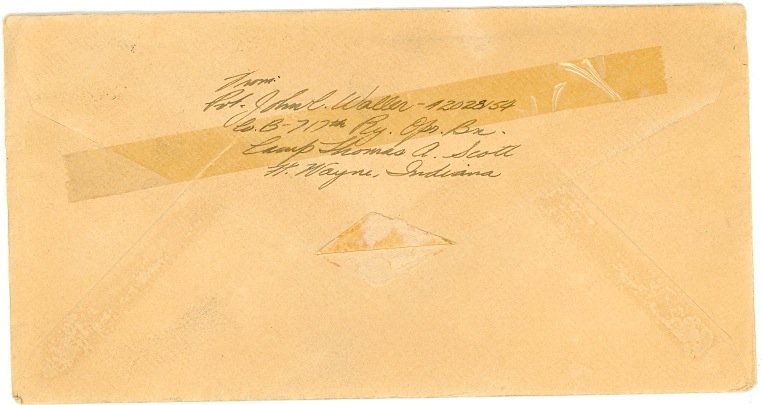 From:
Pvt. John C. Waller - 12028154
Co. B - 717th Ry. Opr. Bn.
Camp Thomas A. Scott
Ft. Wayne, Indiana